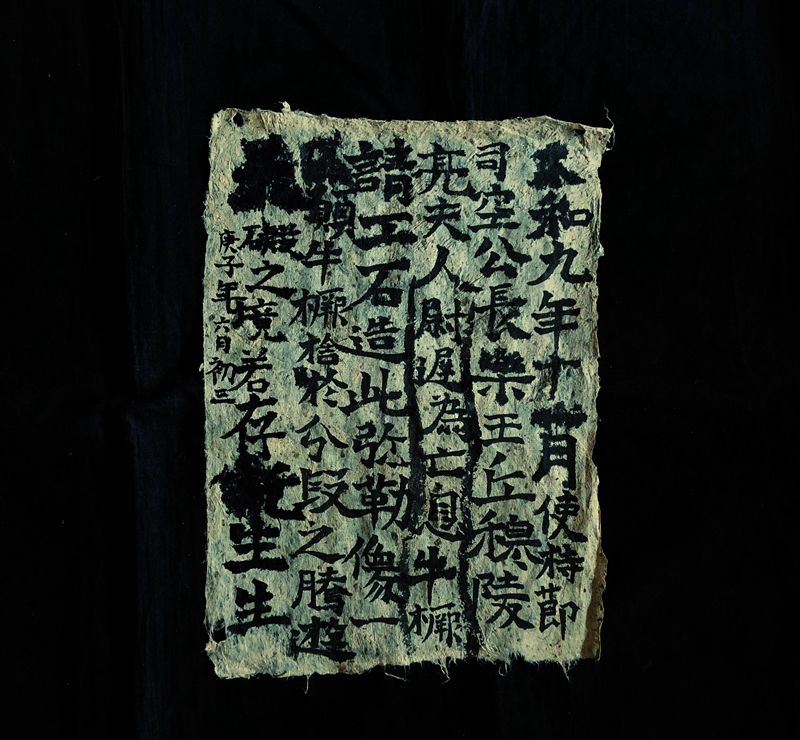 太和九年十一月使持節
司空公長樂王丘穆陵
亮夫人尉遲為亡息牛橛
請工石造此弥勒像一
願牛橛捨於分段之騰遊
礙之境若存託生生
庚子年六月初三